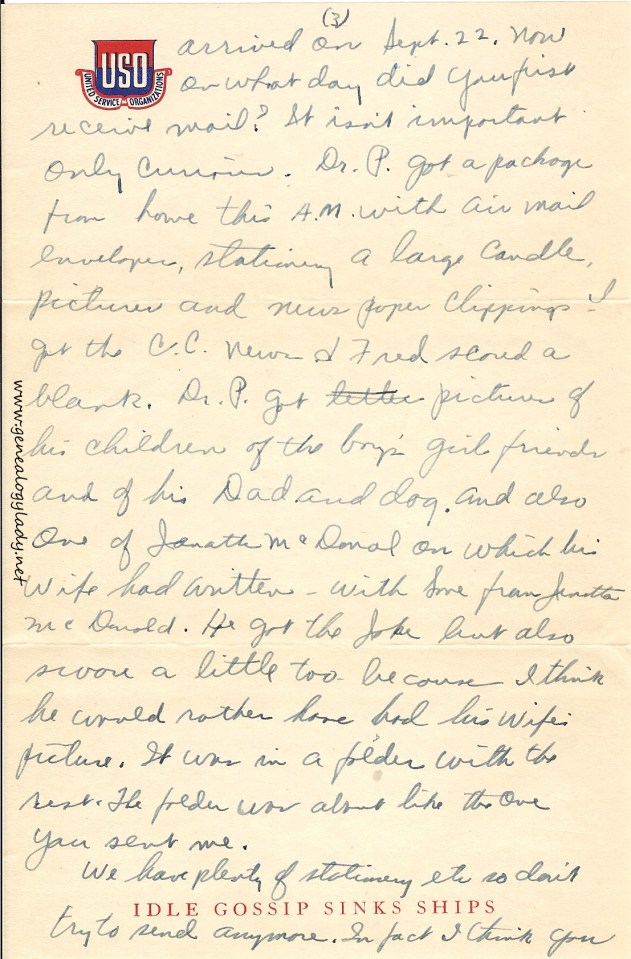 (3)
USO
UNITED SERVICE ORGANIZATIONS
arrived on Sept. 22. Now
on what day did you first
receive mail? It isn't important
only curious. Dr. P. got a package
from home this A.M. with air mail
envelopes, stationery a large candle,
pictures and news paper clippings - I
got the C.C. News & Fred scored a
blank. Dr. P. got letter pictures of
his children of the boy's girl friends
and of his Dad and dog. and also
One of Janette McDonal on which his
Wife had written - with love from Janette
McDonald. He got the Joke but also
swore a little too because I think
he would rather have had his Wife's
picture. It was in a folder with the
rest. The folder was about like the One
you sent me.
We have plenty of stationery etc so don't
IDLE GOSSIP SINKS SHIPS
try to send anymore. In fact I think you
www.genealogylady.net